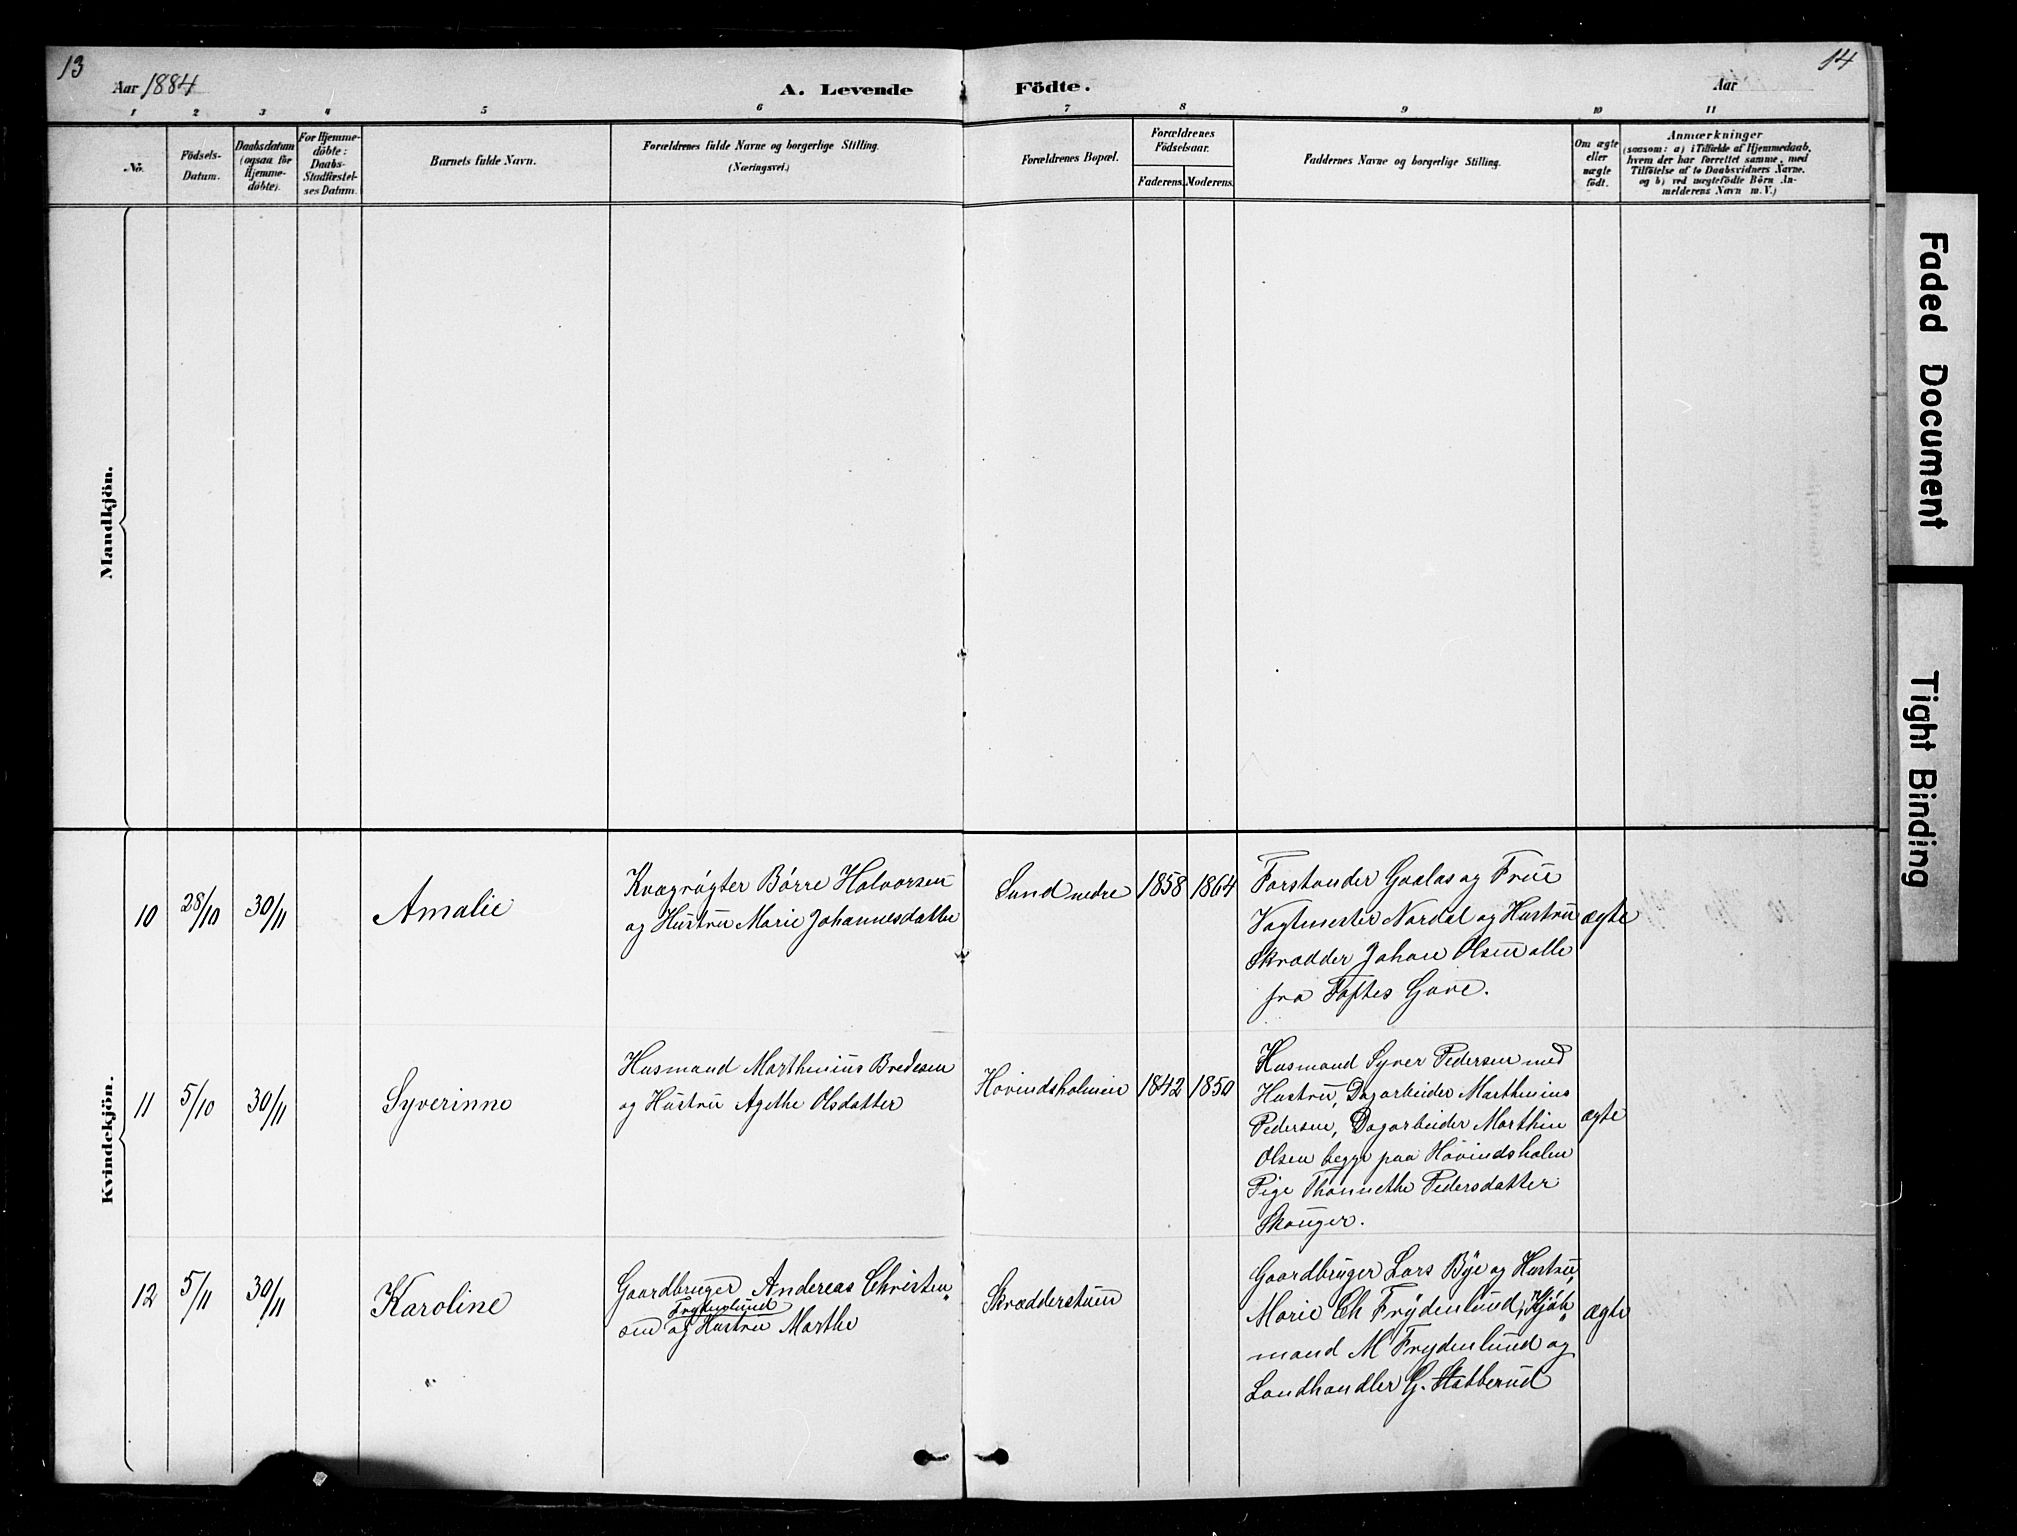 13
14
Aar 1884
A. Levende Födte.
Aar
1 2 3 4 5 6 7 8 9 10 11
No.
Födsels-
Datum.
Daabsdatum
(ogsaa for
Hjemme-
döbte).
For Hjemme-
döbte:
Daabs-
Stadfæstel-
ses Datum.
Barnets fulde Navn.
Forældrenes fulde Navne og borgerlige Stilling.
(Næringsvei.)
Forældrenes Bopæl.
Forældrenes
Födselsaar.
Faderens. Moderens.
Faddernes Navne og borgerlige Stilling.
Om ægte
eller
uægte
födt.
Anmærkninger
(saasom: a) i Tilfælde af Hjemmedaab,
hvem der har forrettet samme, med
Tilföielse af to Daabsvidners Navne.
og b) ved uægtefödte Börn An-
melderens Navn m. V.)
Mandkjön.
Kvindekjön.
10
28/10
30/11
Amalie
Kvægrøgter Børre Halvorsen
og Hustru Marie Johannesdatter
Sund nedre
1858
1864
Forstander Gaalas og Frue
Vagtmester Nordal og Hustru
Skrædder Johan Olsen alle
fra Toftes Gave.
ægte
11
5/10
30/11
Syverinne
Husmand Marthinius Bredesen
og Hustru Agethe Olsdatter
Hovindsholmen
1842
1850
Husmand Syver Pedersen med
Hustru, Dagarbeider Marthinius
Pedersen, Dagarbeider Marthin
Olsen begge paa Hovindsholm
Pige Thonnethe Pedersdatter
Skouger.
ægte
12
5/11
30/11
Karoline
Gaardbruger Andereas Christen„
Frydenlund
sen og Hustru Marthe
Skrædderstuen
Gaardbruger Lars Bye og Hustru,
Marie Ch Frydenlund, Kjøb„
mand M Frydenlund og
Landhandler G. Stabberud
ægte
Faded Document
Tight Binding